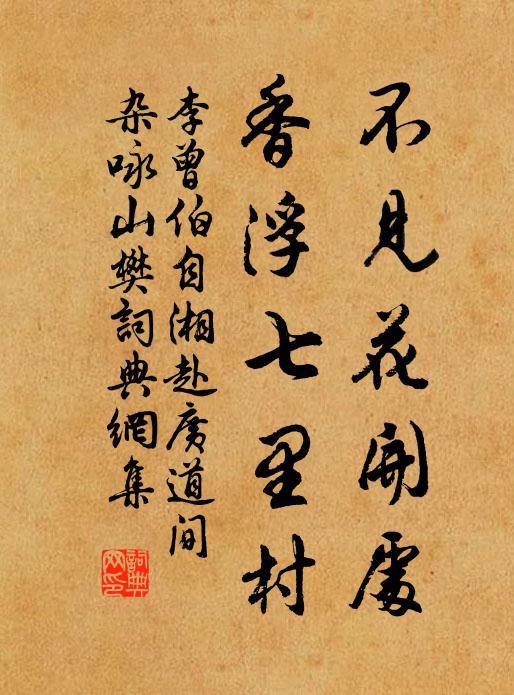 不見花開處
香浮七里村
李曾伯自湘赴广道间
杂咏山樊詞典網集
詞典網印